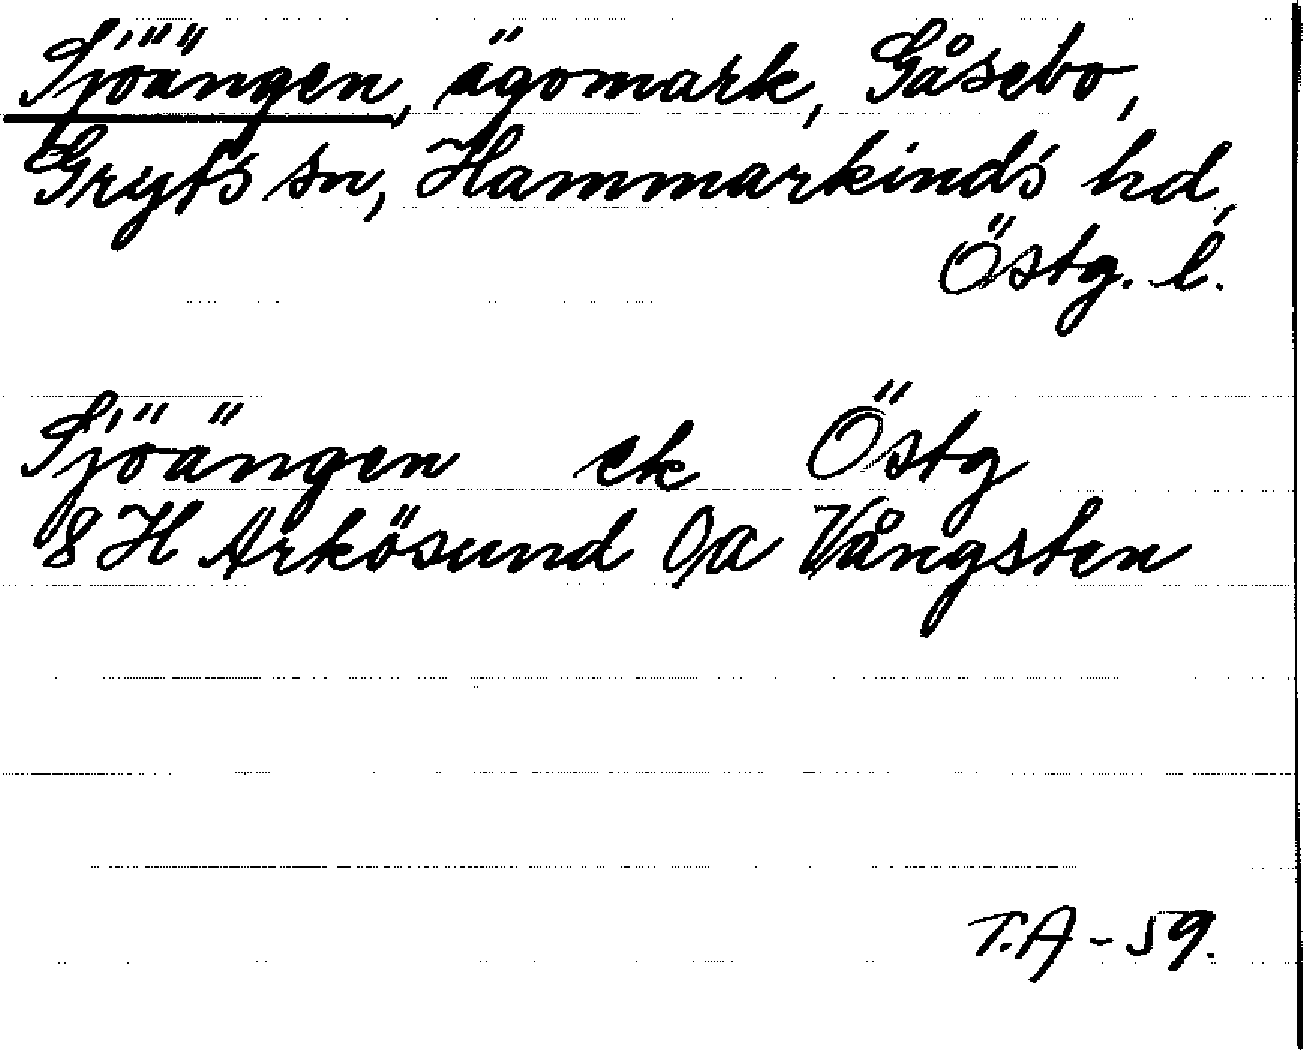 Sjöängen, ägomark, Gåsebo,
Gryts sn, Hammarkinds hd,
Östg. l.
Sjöängen ek Östg
8H Arkösund 9a Vångsten
T.A - 59.